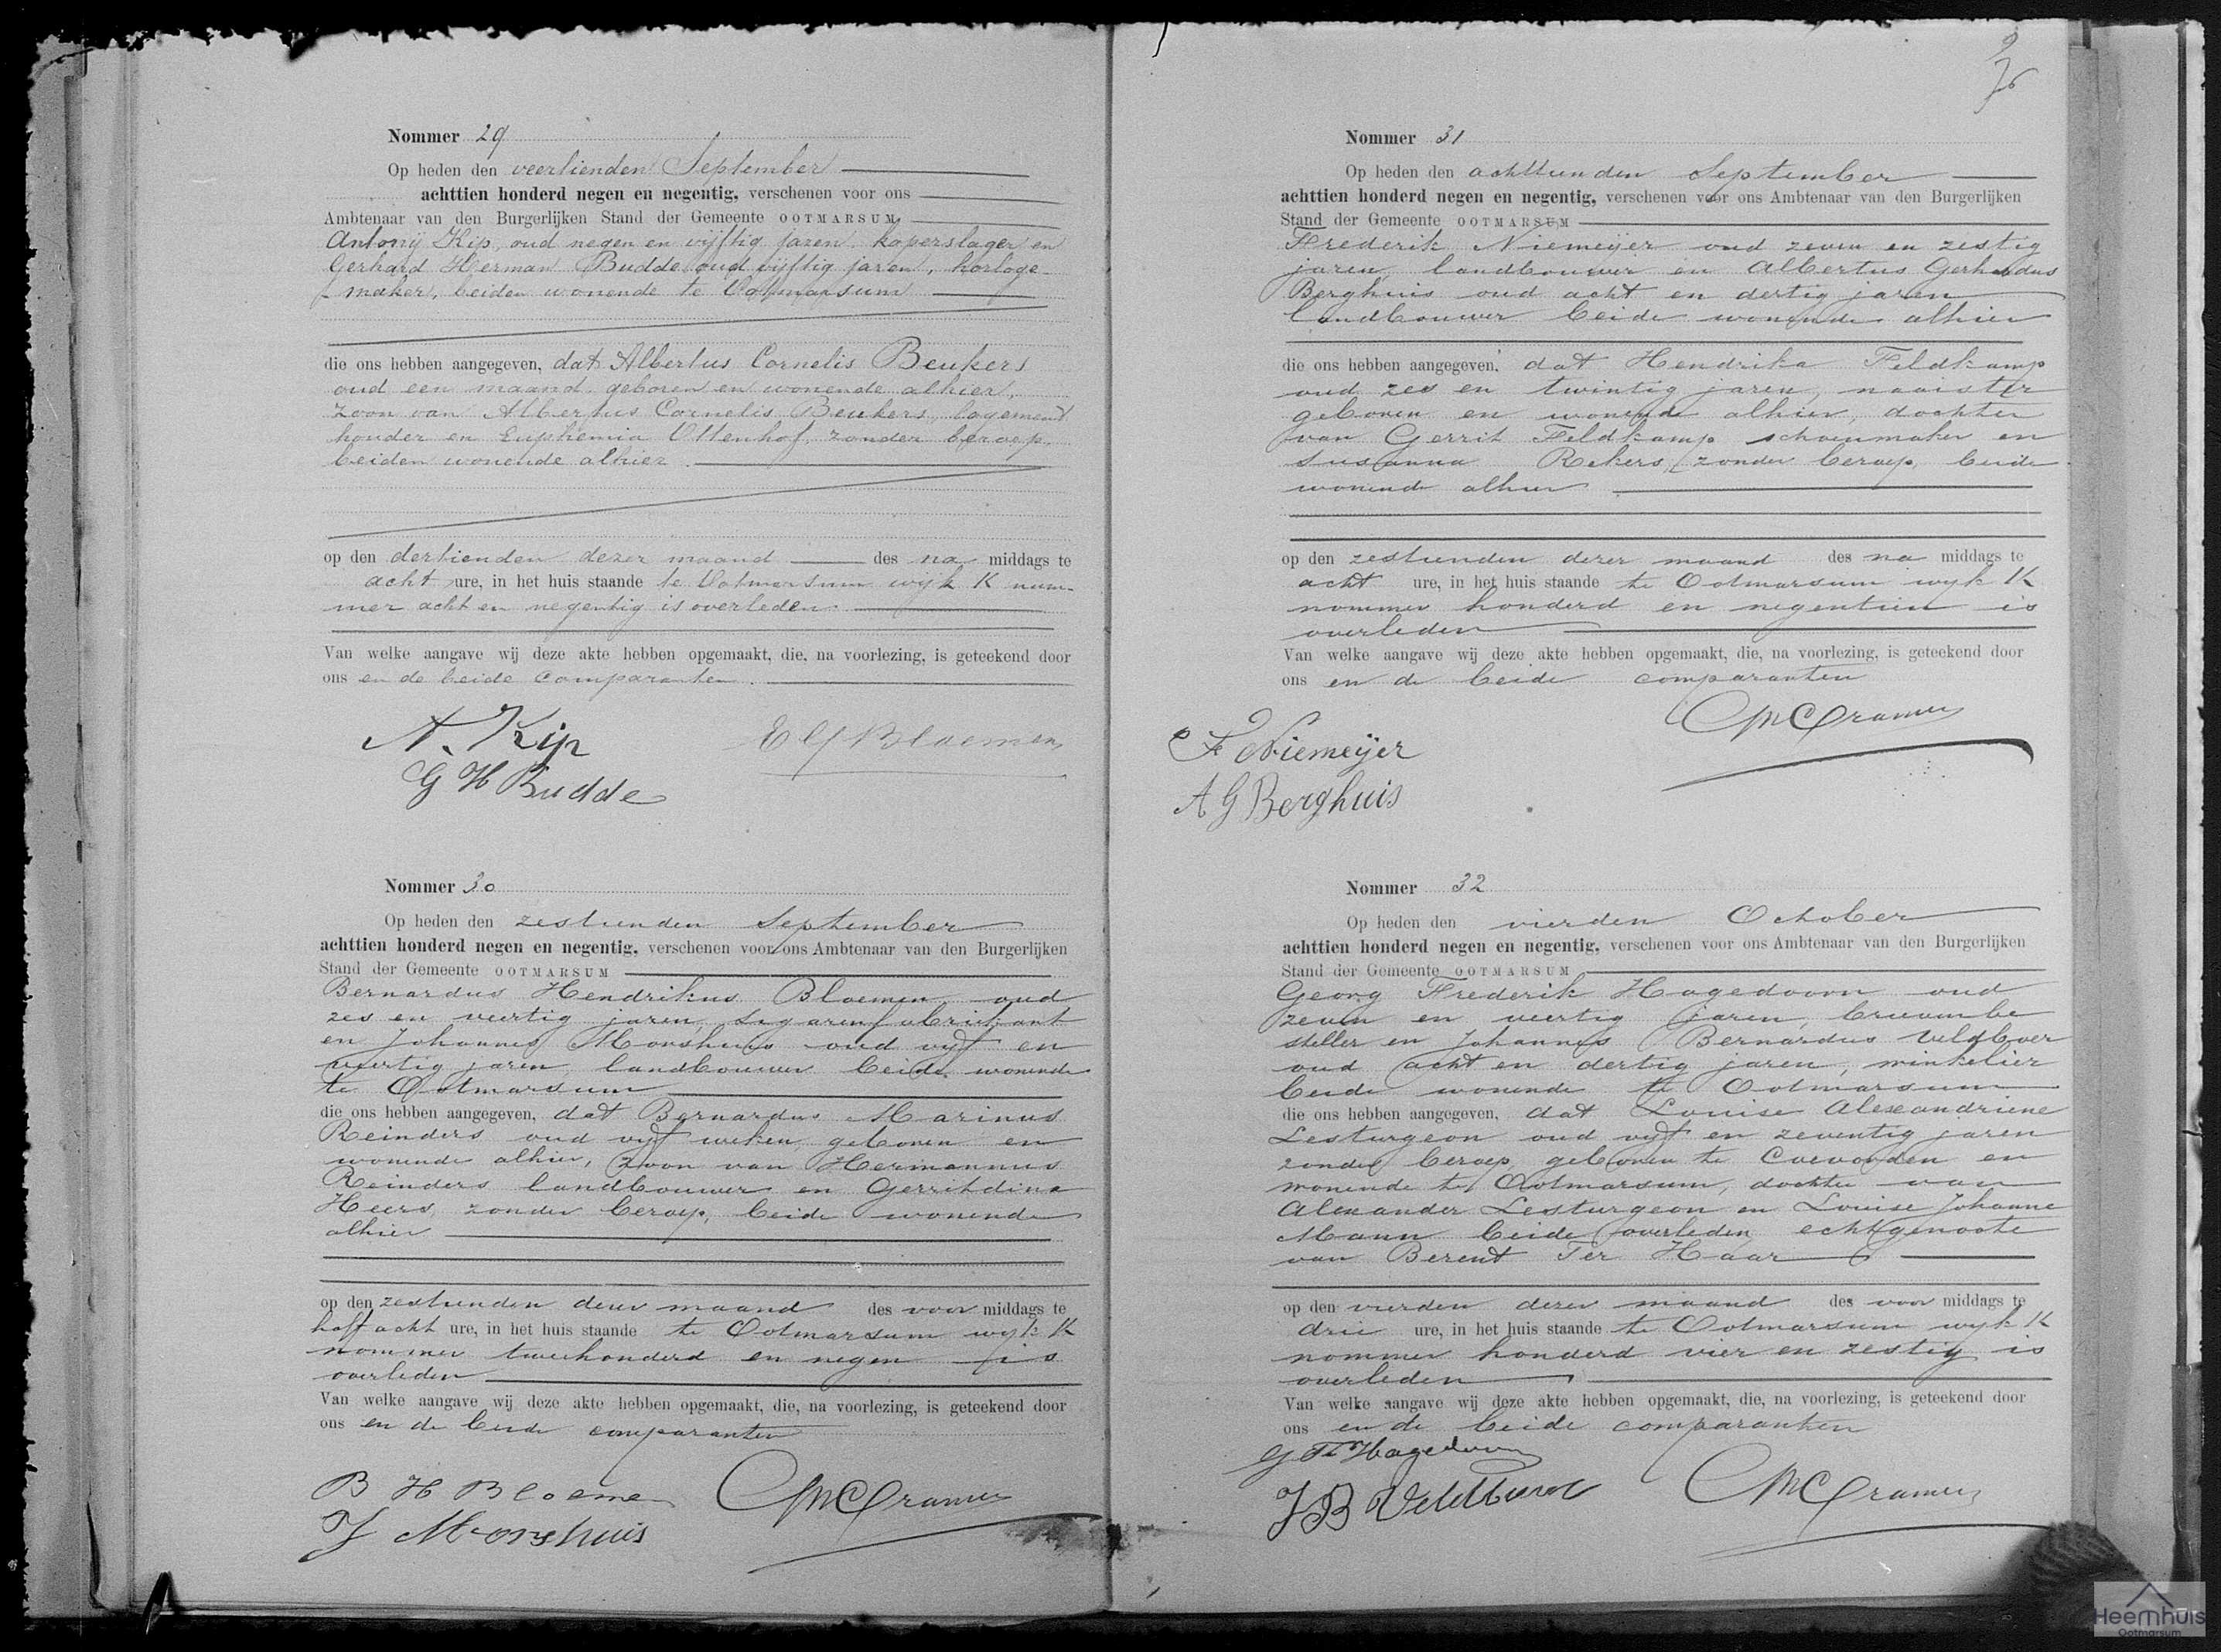 Nommer 29
Op heden den veertienden September
achttien honderd negen en negentig, verschenen voor ons
Ambtenaar van den Burgerlijken Stand der Gemeente OOTMARSUM
Antonij Kip, oud negen en vijftig jaren, koperslager en
Gerhard Herman Budde oud vijftig jaren, horloge-
maker, beiden wonende te Ootmarsum
die ons hebben aangegeven, dat Albertus Cornelis Beukers
oud een maand geboren en wonende alhier,
zoon van Albertus Cornelis Beukers, logement
houder en Euphemia Ottenhof, zonder beroep,
beiden wonende alhier
op den dertienden dezer maand des na middags te
acht ure, in het huis staande te Ootmarsum wijk K num-
mer acht en negentig is overleden.
Van welke aangave wij deze akte hebben opgemaakt, die, na voorlezing, is geteekend door
ons en de beide comparanten.
A. Kip
Bloemen
G H Budde
Nommer 30
Op heden den zestienden September
achttien honderd negen en negentig, verschenen voor ons Ambtenaar van den Burgerlijken
Stand der Gemeente OOTMARSUM
Bernardus Hendrikus Bloemen, oud
zes en veertig jaren, sigarenfabrikant
en Johannes Morshuis oud vijf en
veertig jaren, landbouwer beide wonende
te Ootmarsum
die ons hebben aangegeven, dat Bernardus Marinus
Reinders oud vijf weken, geboren en
wonende alhier, zoon van Hermannus
Reinders landbouwer en Gerritdina
Heers, zonder beroep, beide wonende
alhier
op den zestienden dezer maand des voor middags te
half acht ure, in het huis staande te Ootmarsum wijk K
nommer tweehonderd en negen is
overleden
Van welke aangave wij deze akte hebben opgemaakt, die, na voorlezing, is geteekend door
ons en de beide comparanten
B H Bloemen
Cramer
J Morshuis
Nommer 31
Op heden den achttienden September
achttien honderd negen en negentig, verschenen voor ons Ambtenaar van den Burgerlijken
Stand der Gemeente OOTMARSUM
Frederik Niemeijer oud zeven en zestig
jaren, landbouwer en Albertus Gerhardus
Berghuis oud acht en dertig jaren
landbouwer beide wonende alhier
die ons hebben aangegeven, dat Hendrika Feldkamp
oud zes en twintig jaren, naaister
geboren en wonende alhier, dochter
van Gerrit Feldkamp schoenmaker en
Susanna Rekers, zonder beroep, beide
wonende alhier
op den zestienden dezer maand des na middags te
acht ure, in het huis staande te Ootmarsum wijk K
nommer honderd en negentien is
overleden
Van welke aangave wij deze akte hebben opgemaakt, die, na voorlezing, is geteekend door
ons en de beide comparanten
Cramer
F Niemeijer
A G Berghuis
Nommer 32
Op heden den vierden October
achttien honderd negen en negentig, verschenen voor ons Ambtenaar van den Burgerlijken
Stand der Gemeente OOTMARSUM
Georg Frederik Hagedoorn oud
zeven en veertig jaren, brievenbe
steller en Johannes Bernardus Veldboer
oud acht en dertig jaren, winkelier
beide wonende te Ootmarsum
die ons hebben aangegeven, dat Louise Alexandriene
Lesturgeon oud vijf en zeventig jaren
zonder beroep geboren te Coevorden en
wonende te Ootmarsum, dochter van
Alexander Lesturgeon en Louise Johanne
Mann beide overleden, echtgenoote
van Berent Ter Haar
op den vierden dezer maand des voor middags te
drie ure, in het huis staande te Ootmarsum wijk K
nommer honderd vier en zestig is
overleden
Van welke aangave wij deze akte hebben opgemaakt, die, na voorlezing, is geteekend door
ons en de beide comparanten
G F Hagedoorn
J B Veldboer
Cramer
Heemhuis
Ootmarsum